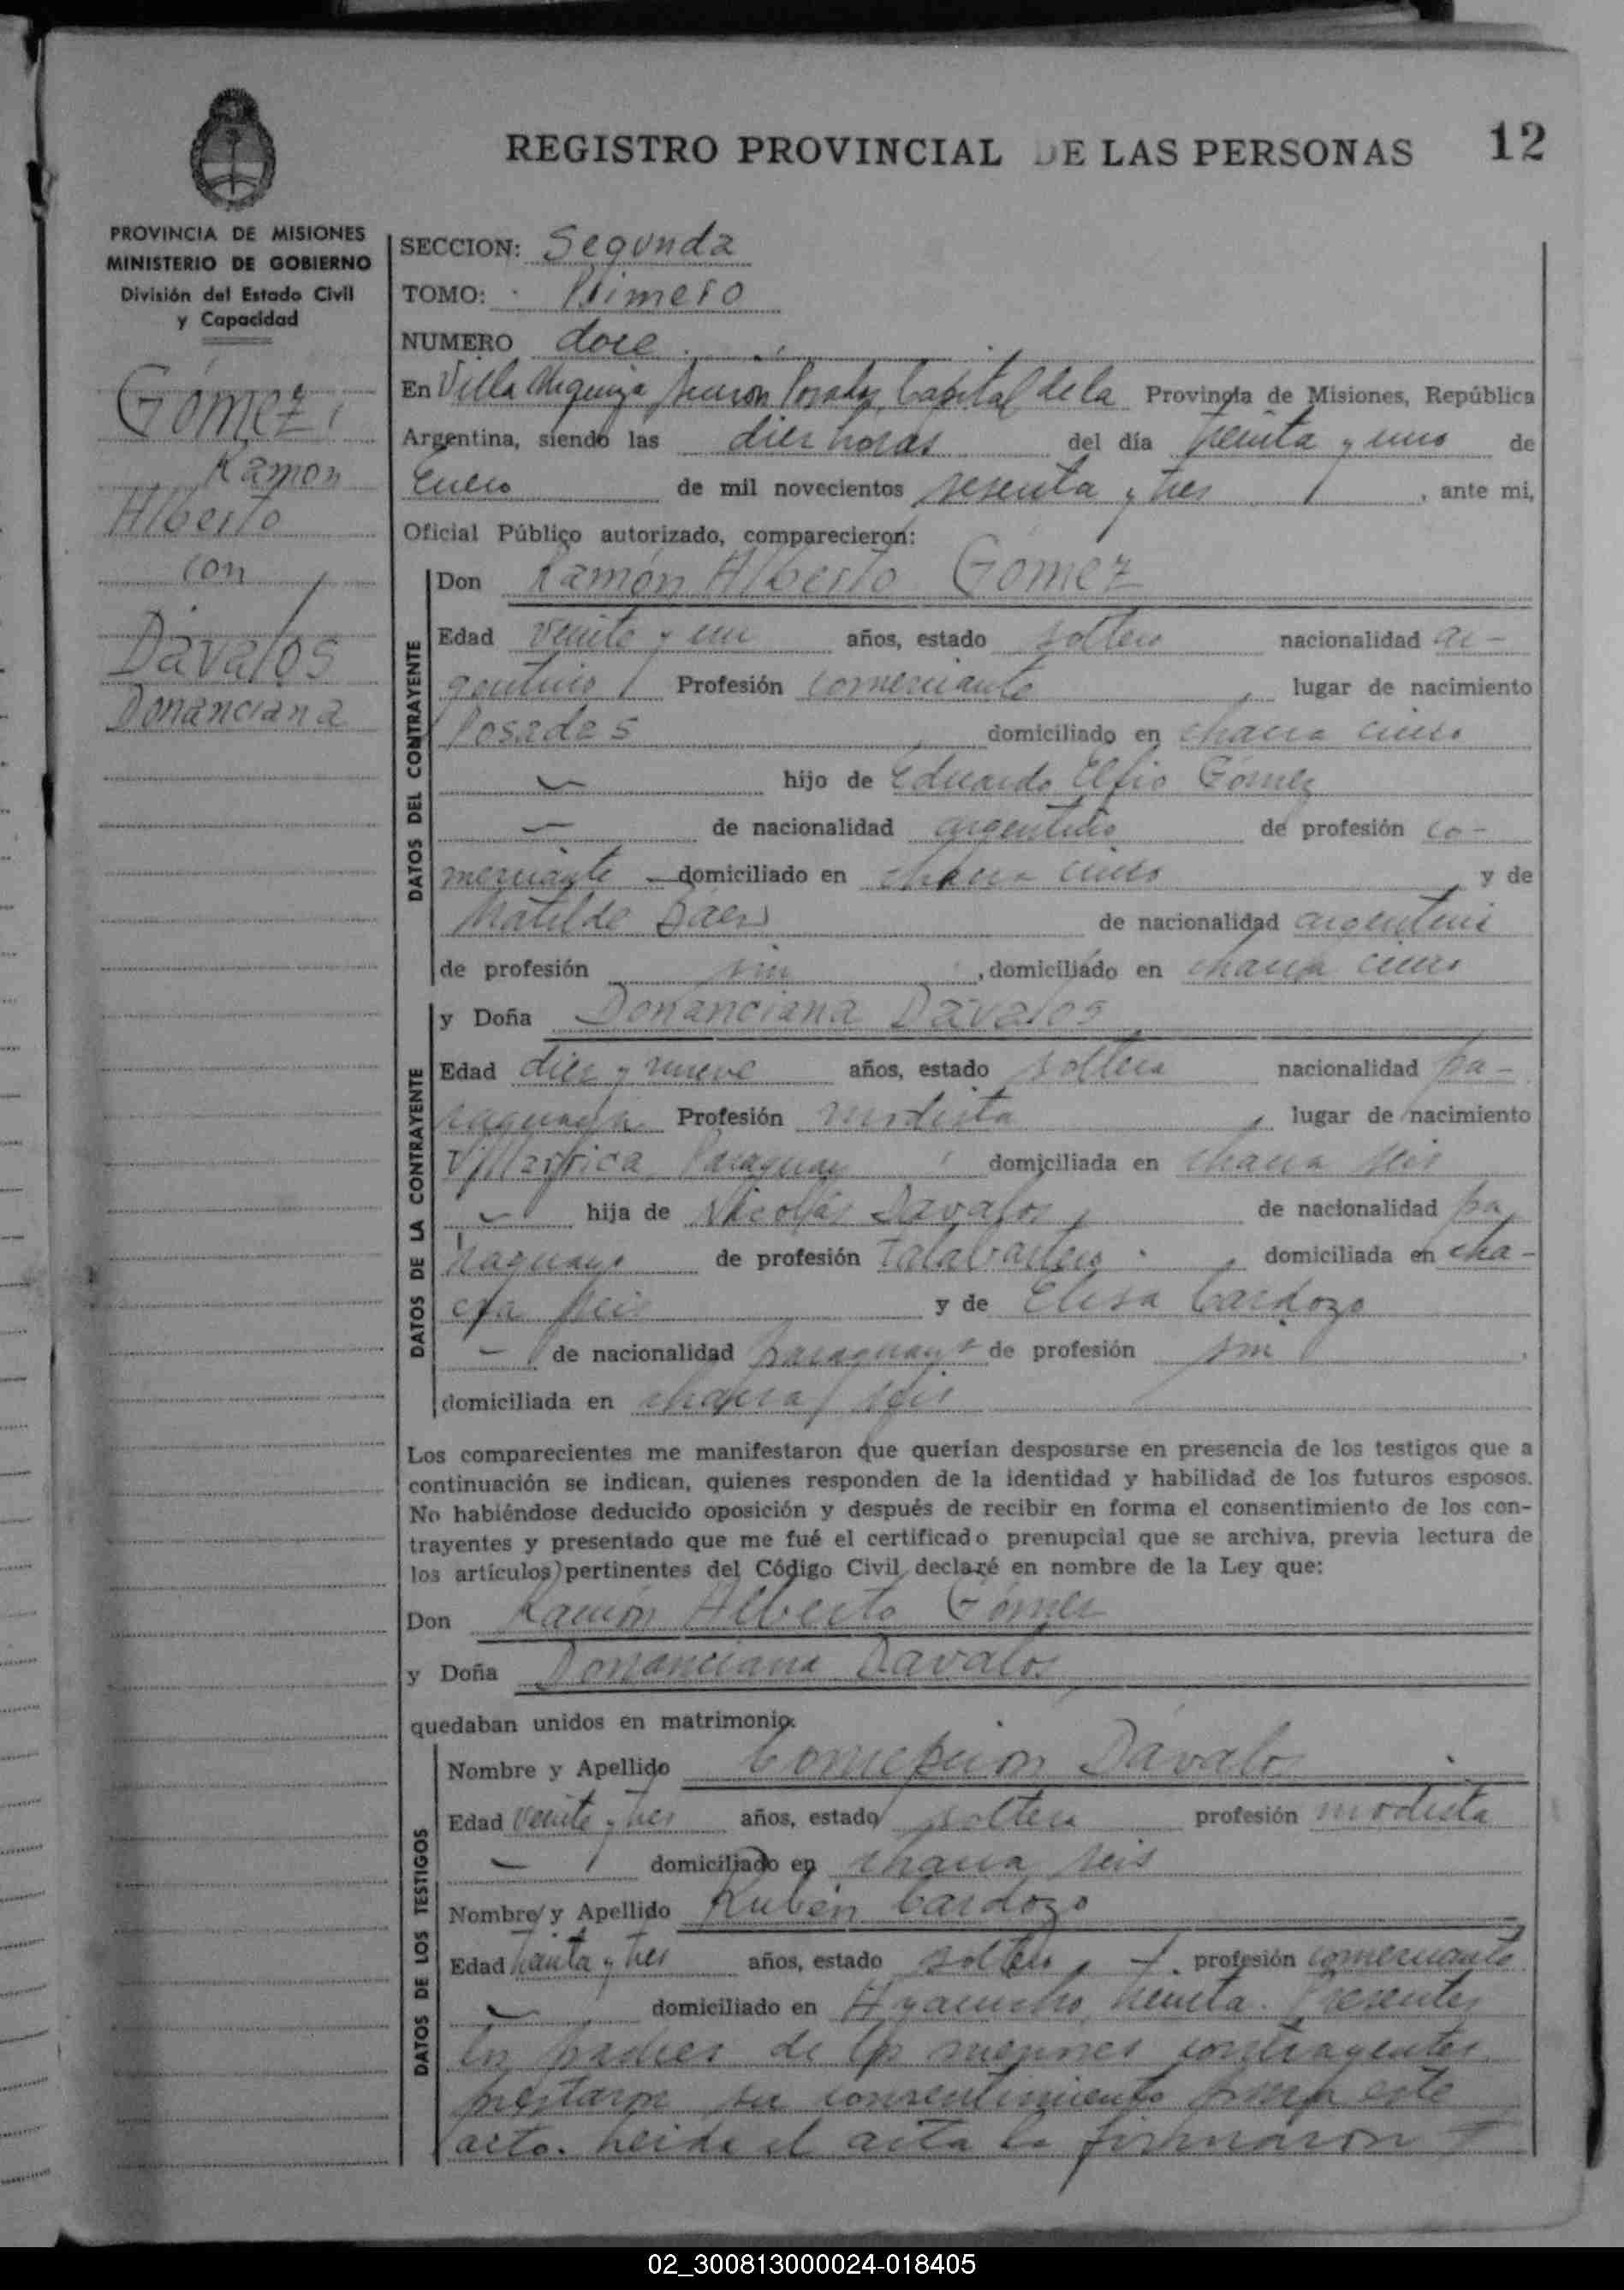 REGISTRO PROVINCIAL DE LAS PERSONAS 12
PROVINCIA DE MISIONES
MINISTERIO DE GOBIERNO
División del Estado Civil
y Capacidad
Gómez
Ramon
Alberto
con
Davalos
Donanciana
SECCION: Segunda
TOMO: Primero
NUMERO doce
En Villa Urquiza Sección Posadas Capital de la Provincia de Misiones, República
Argentina, siendo las diez horas del día treinta y uno de
Enero de mil novecientos sesenta y tres, ante mi,
Oficial Público autorizado, comparecieron:
DATOS DEL CONTRAYENTE
Don Ramón Alberto Gómez
Edad veinte y un años, estado soltero nacionalidad ar-
gentino Profesión comerciante, lugar de nacimiento
Posadas domiciliado en chacra cinco
hijo de Eduardo Elfio Gómez
de nacionalidad argentino de profesión co-
merciante domiciliado en chacra cinco y de
Matilde Baers de nacionalidad argentina
de profesión sin, domiciliado en chacra cinco
DATOS DE LA CONTRAYENTE
y Doña Donanciana Davalos
Edad diez y nueve años, estado soltera nacionalidad pa-
raguaya Profesión modista, lugar de nacimiento
Villarrica Paraguay domiciliada en chacra seis
hija de Nicolás Davalos, de nacionalidad pa
raguayo de profesión talabartero, domiciliada en cha-
cra seis y de Elisa Cardozo
de nacionalidad paraguaya de profesión sin,
domiciliada en chacra seis
Los comparecientes me manifestaron que querían desposarse en presencia de los testigos que a
continuación se indican, quienes responden de la identidad y habilidad de los futuros esposos.
No habiéndose deducido oposición y después de recibir en forma el consentimiento de los con-
trayentes y presentado que me fué el certificado prenupcial que se archiva, previa lectura de
los artículos pertinentes del Código Civil declaré en nombre de la Ley que:
Don Ramón Alberto Gómez
y Doña Donanciana Davalos
quedaban unidos en matrimonio.
DATOS DE LOS TESTIGOS
Nombre y Apellido Concepción Dávalos
Edad veinte y tres años, estado soltera profesión modista
domiciliado en chacra seis
Nombre y Apellido Rubén Cardozo
Edad treinta y tres años, estado soltero, profesión comerciante
domiciliado en Ayacucho treinta. Presentes
los padres de los menores contrayentes
prestaron su consentimiento para este
acto. Leida el acta la firmaron
02_300813000024-018405